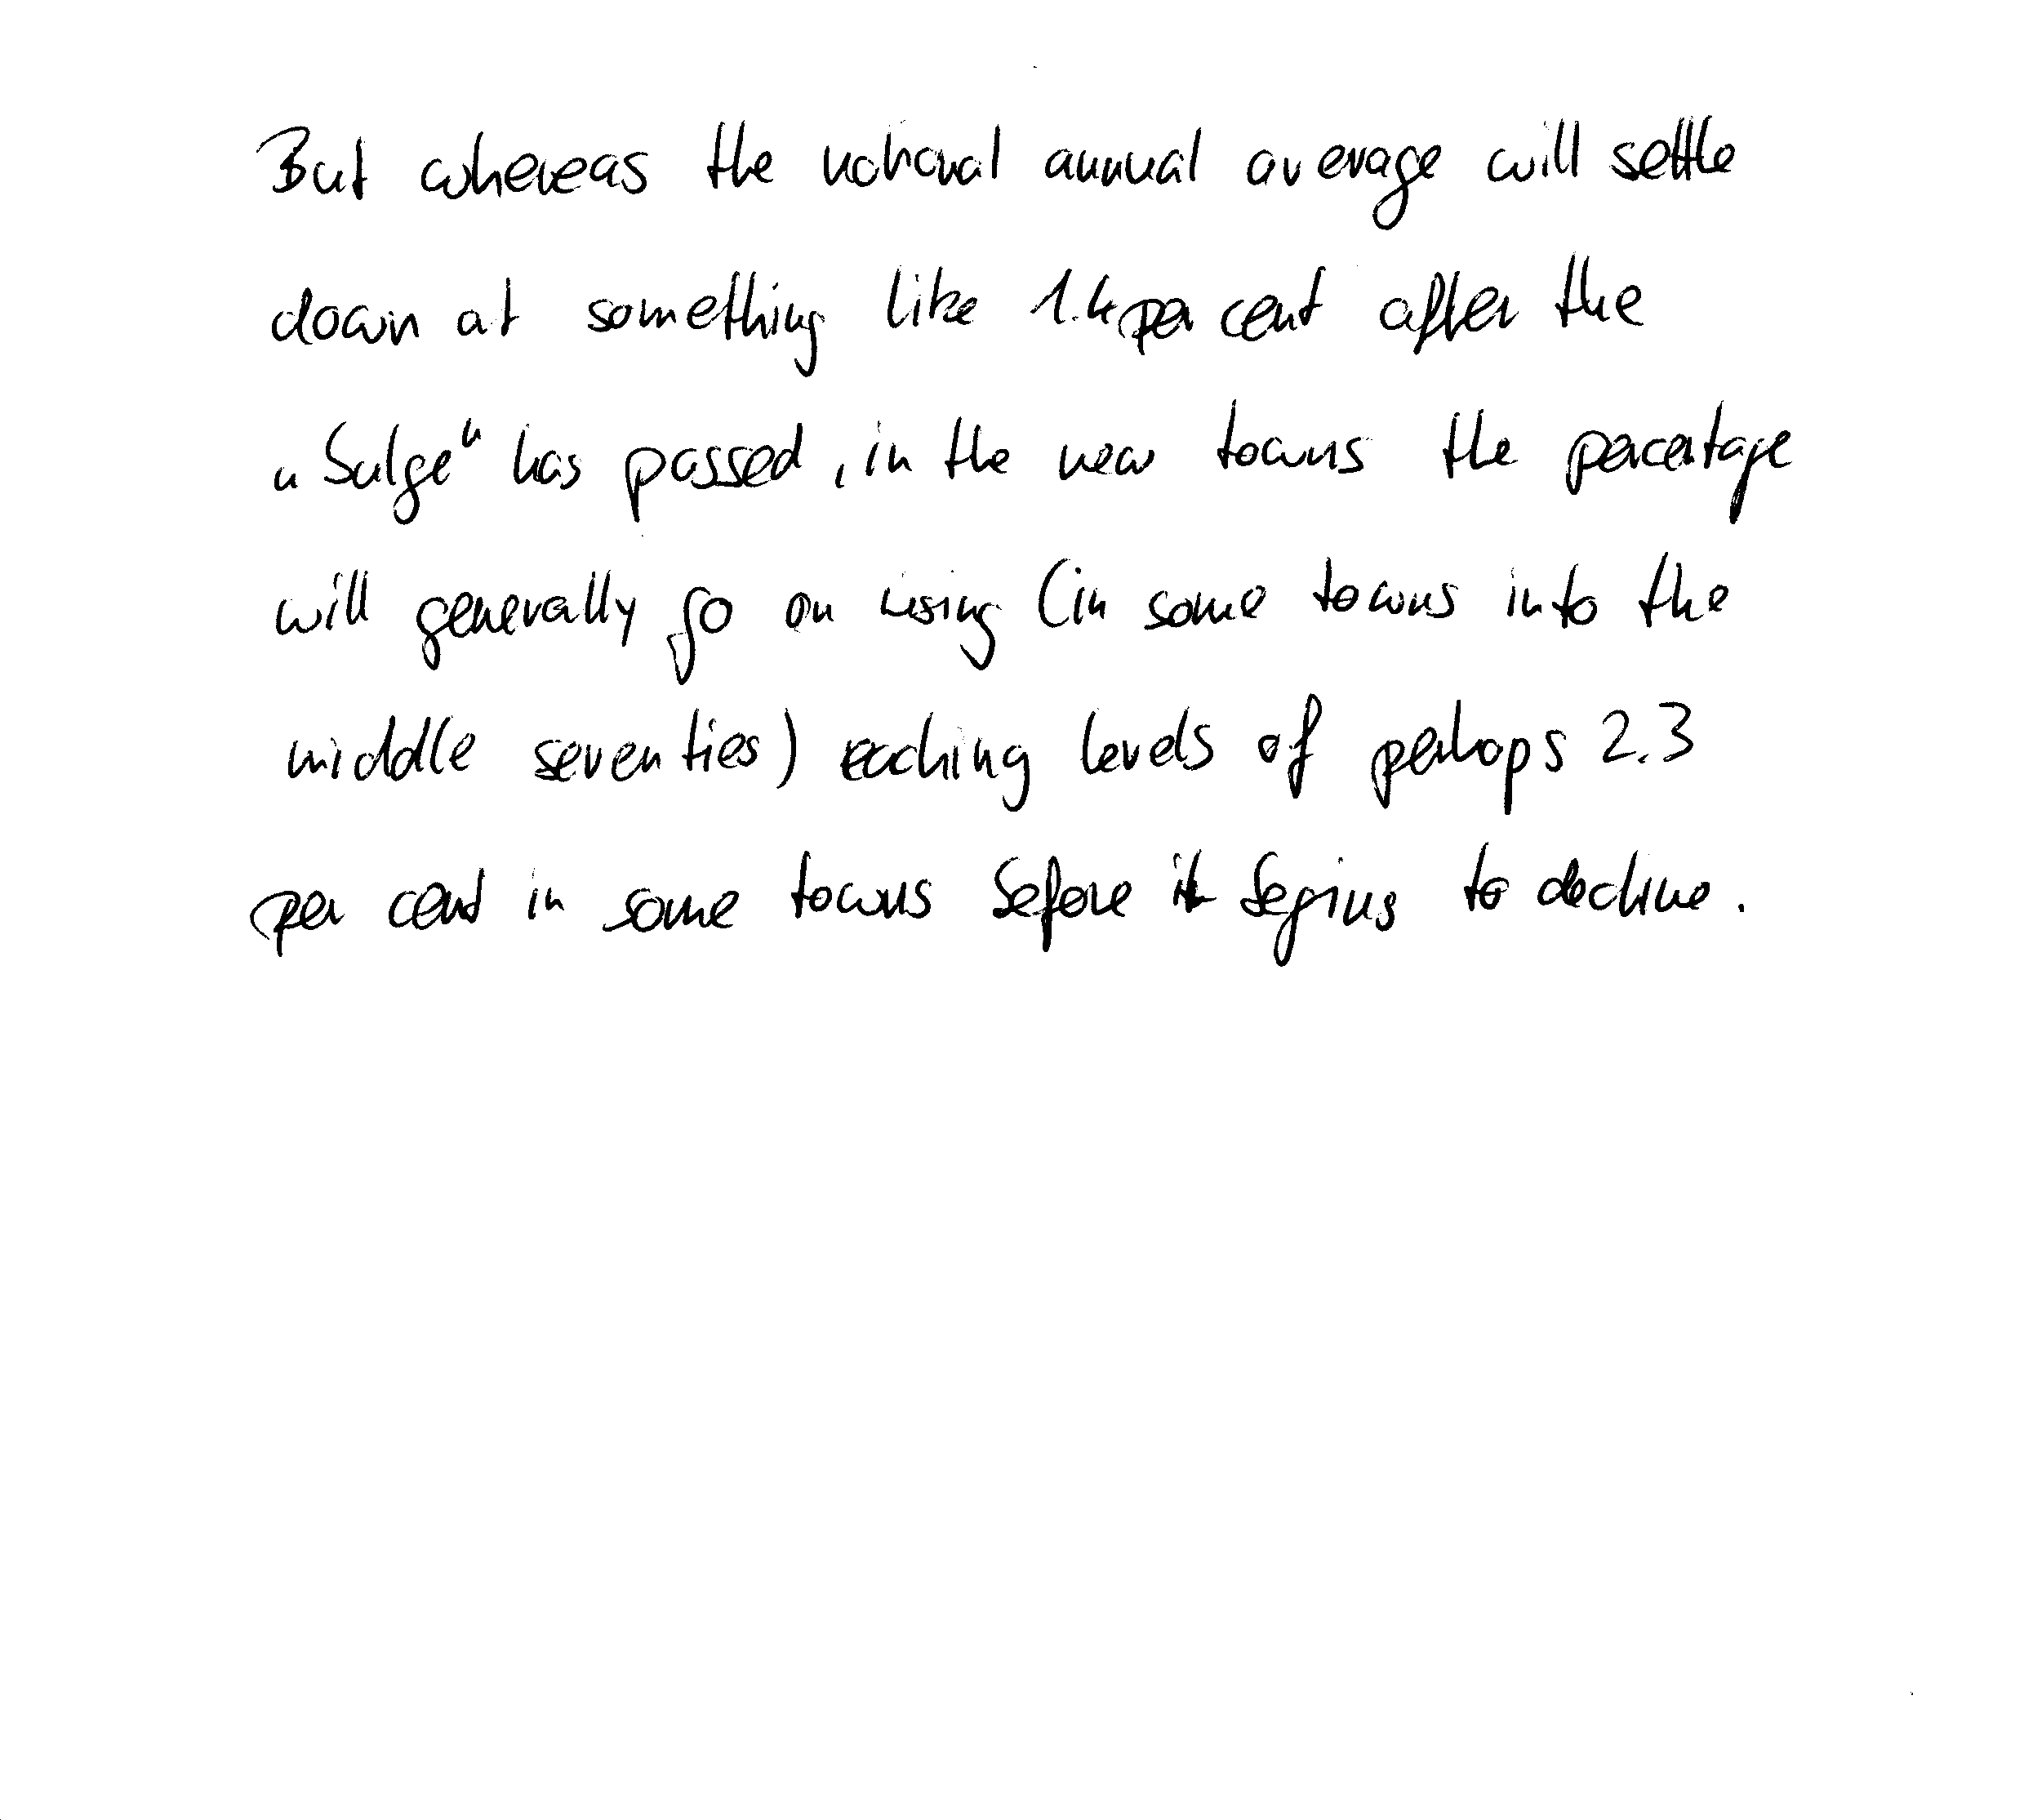 But whereas the national annual average will settle
down at something like 1.4 per cent after the
„bulge“ has passed, in the new towns the percentage
will generally go on rising (in some towns into the
middle seventies) reaching levels of perhaps 2.3
per cent in some towns before it begins to decline.